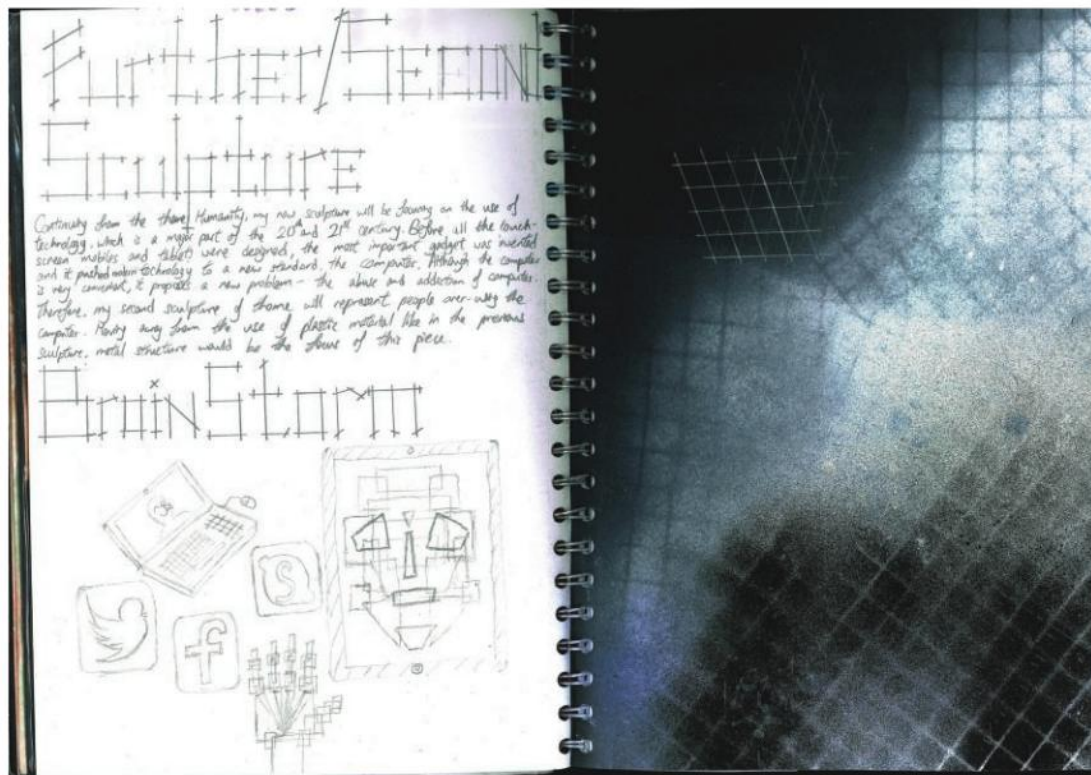 Further/Second
Sculpture
Continuity from the theme Humanity, my new sculpture will be focusing on the use of
technology, which is a major part of the 20th and 21st century. Before all the touch-
screen mobiles and tablets were designed, the most important gadget was invented
and it pushed modern technology to a new standard, the computer. Although the computer
is very convenient, it proposes a new problem - the abuse and addiction of computer.
Therefore, my second sculpture of theme will represent people over-using the
computer. Moving away from the use of plastic material like in the previous
sculpture, metal structure would be the focus of this piece.
BrainStorm
S
f